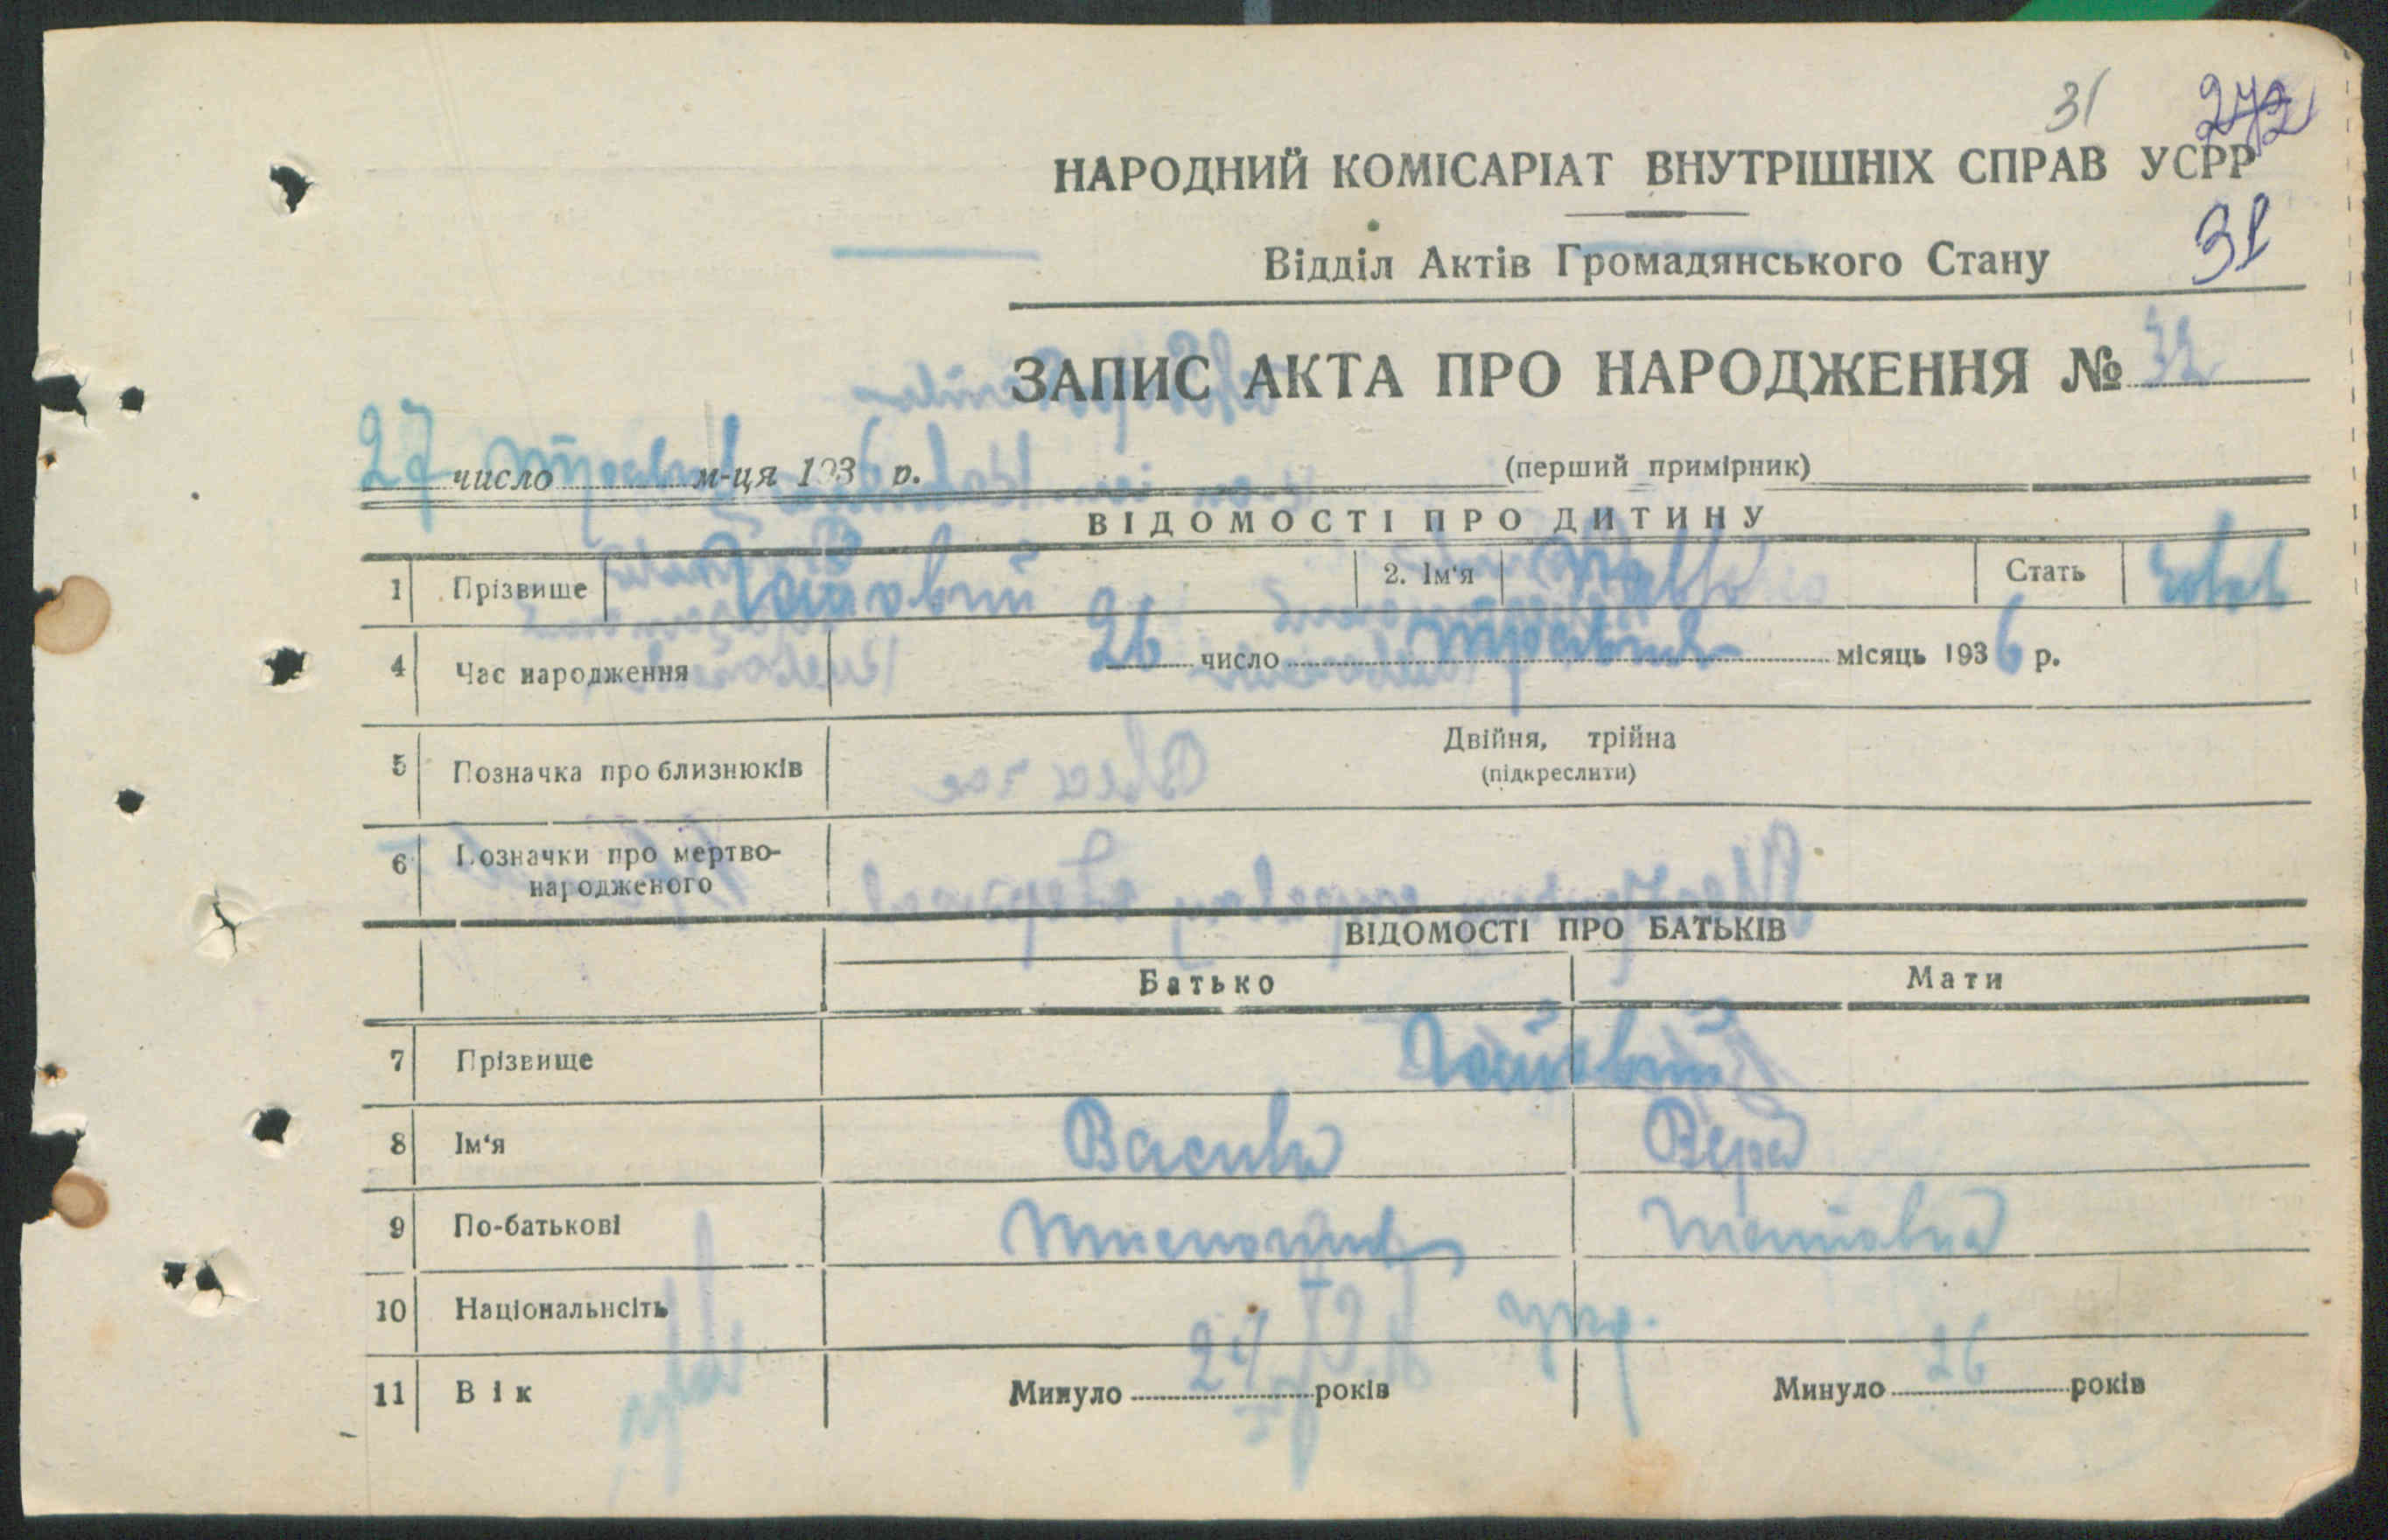 31 272
НАРОДНИЙ КОМІСАРІАТ ВНУТРІШНІХ СПРАВ УСРР
31
Відділ Актів Громадянського Стану
ЗАПИС АКТА ПРО НАРОДЖЕННЯ № 32
27 число травня м-ця 1936 р. (перший примірник)
ВІДОМОСТІ ПРО ДИТИНУ
1 Прізвище 2. Ім'я Стать чолов
4 Час народження 26 число травня місяць 1936 р.
5 Позначка про близнюків Двійня, трійна
(підкреслити)
6 Позначки про мертво-
народженого
ВІДОМОСТІ ПРО БАТЬКІВ
Батько Мати
7 Прізвище
8 Ім'я Василь Вера
9 По-батькові
10 Національнсіть укр.
11 Вік Минуло 27 років Минуло 26 років